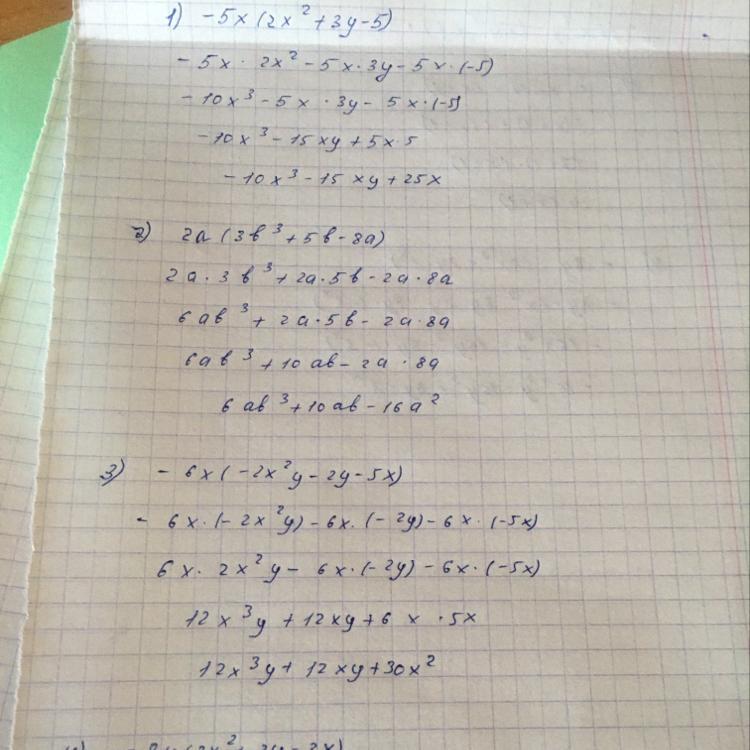 1) -5x (2x² + 3y - 5)
- 5x · 2x² - 5x · 3y - 5x · (-5)
- 10x³ - 5x · 3y - 5x · (-5)
-10x³ - 15xy + 5x · 5
-10x³ - 15xy + 25x
2) 2a (3b³ + 5b - 8a)
2a · 3b³ + 2a · 5b - 2a · 8a
6ab³ + 2a · 5b - 2a · 8a
6ab³ + 10ab - 2a · 8a
6ab³ + 10ab - 16a²
3) - 6x (-2x²y - 2y - 5x)
- 6x · (-2x²y) - 6x · (-2y) - 6x · (-5x)
6x · 2x²y - 6x · (-2y) - 6x · (-5x)
12x³y + 12xy + 6x · 5x
12x³y + 12xy + 30x²